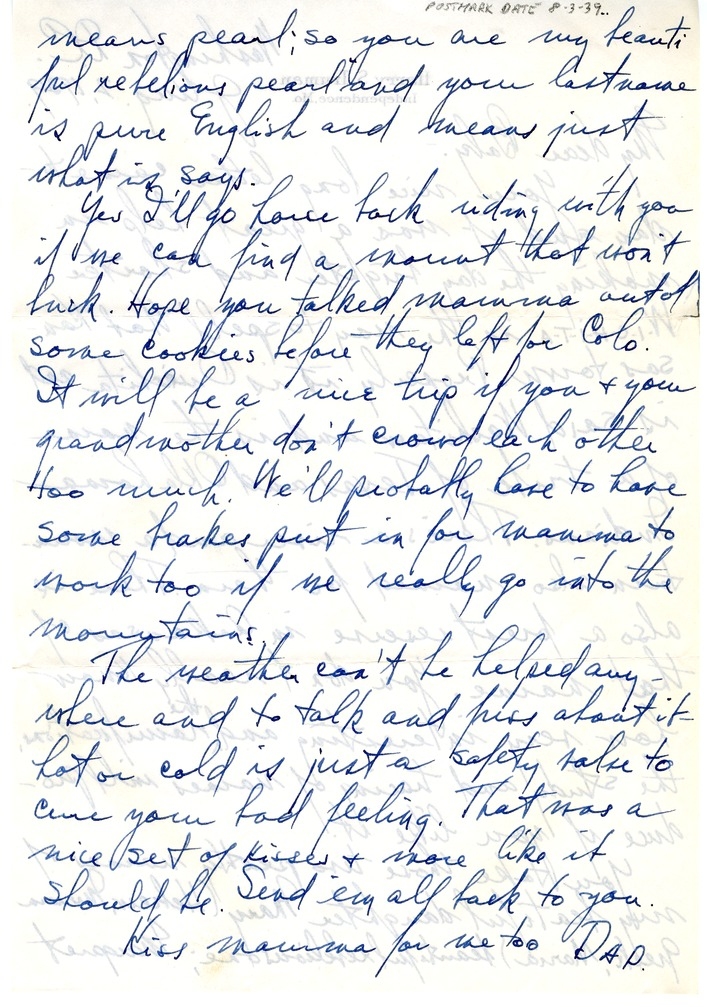 POSTMARK DATE 8-3-39..
means pearl; so you are my beauti
ful rebelious pearl and your last name
is pure English and means just
what is says.
Yes I'll go horse back riding with you
if we can find a mount that won't
buck. Hope you talked mamma out of
some cookies before they left for Colo.
It will be a nice trip if you & your
grandmother don't crowd each other
too much. We'll probably have to have
some brakes put in for mamma to
work too if we really go into the
mountains.
The weather can't be helped any-
where and to talk and fuss about it
hot or cold is just a safety valve to
cure your bad feeling. That was a
nice set of kisses & more like it
should be. Send 'em all back to you.
Kiss mamma for me too DAD.